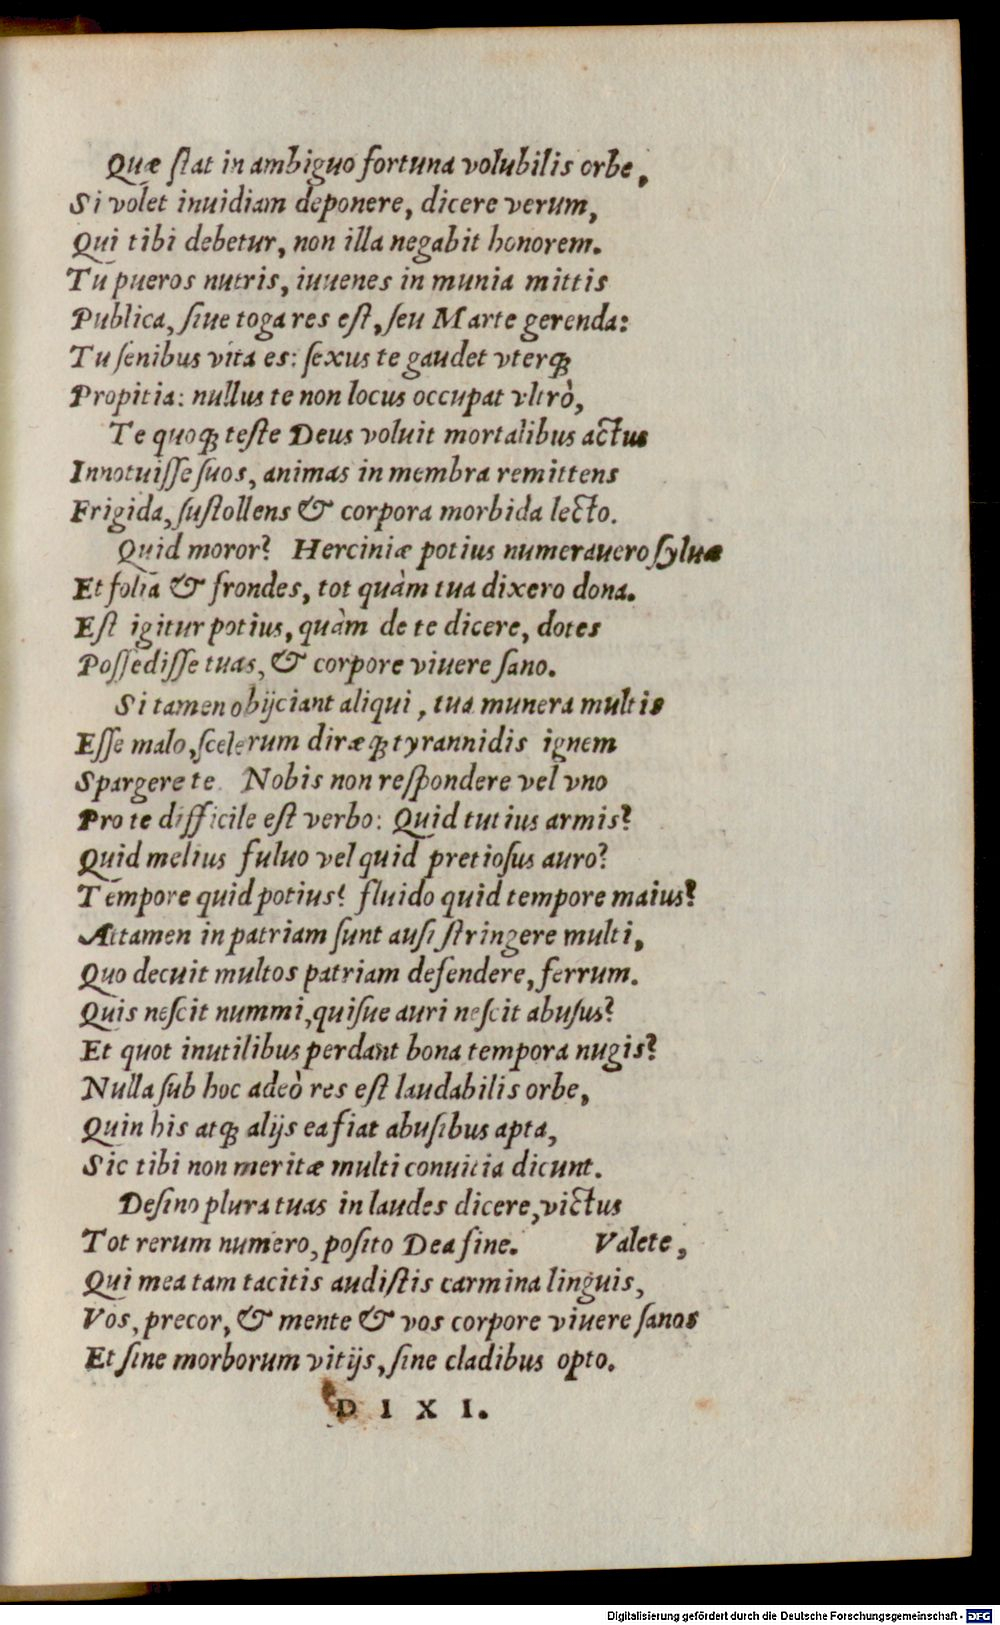 Quæ ſtat in ambiguo fortuna volubilis orbe,
Si volet inuidiam deponere, dicere verum,
Qui tibi debetur, non illa negabit honorem.
Tu pueros nutris, iuuenes in munia mittis
Publica, ſiue toga res eſt, ſeu Marte gerenda:
Tu ſenibus vita es: ſexus te gaudet vterq́ꝫ
Propitia: nullus te non locus occupat vltrò,
Te quoq́ꝫ teſte Deus voluit mortalibus actus
Innotuiſſe ſuos, animas in membra remittens
Frigida, ſuſtollens & corpora morbida lecto.
Quid moror? Herciniæ potius numerauero ſyluæ
Et folia & frondes, tot quàm tua dixero dona.
Eſt igitur potius, quàm de te dicere, dotes
Poſſediſſe tuas, & corpore viuere ſano.
Si tamen obijciant aliqui, tua munera multis
Eſſe malo, ſcelerum diræq́ꝫ tyrannidis ignem
Spargere te. Nobis non reſpondere vel vno
Pro te difficile eſt verbo: Quid tutius armis?
Quid melius fuluo vel quid pretioſus auro?
Tempore quid potius? fluido quid tempore maius?
Attamen in patriam ſunt auſi ſtringere multi,
Quo decuit multos patriam defendere, ferrum.
Quis neſcit nummi, quiſue auri neſcit abuſus?
Et quot inutilibus perdant bona tempora nugis?
Nulla ſub hoc adeò res eſt laudabilis orbe,
Quin his atq́ꝫ alijs ea fiat abuſibus apta,
Sic tibi non meritæ multi conuitia dicunt.
Deſino plura tuas in laudes dicere, victus
Tot rerum numero, poſito Dea fine. Valete,
Qui mea tam tacitis audiſtis carmina linguis,
Vos, precor, & mente & vos corpore viuere ſanos
Et ſine morborum vitijs, ſine cladibus opto.
DIXI.
Digitalisierung gefördert durch die Deutsche Forschungsgemeinschaft - DFG